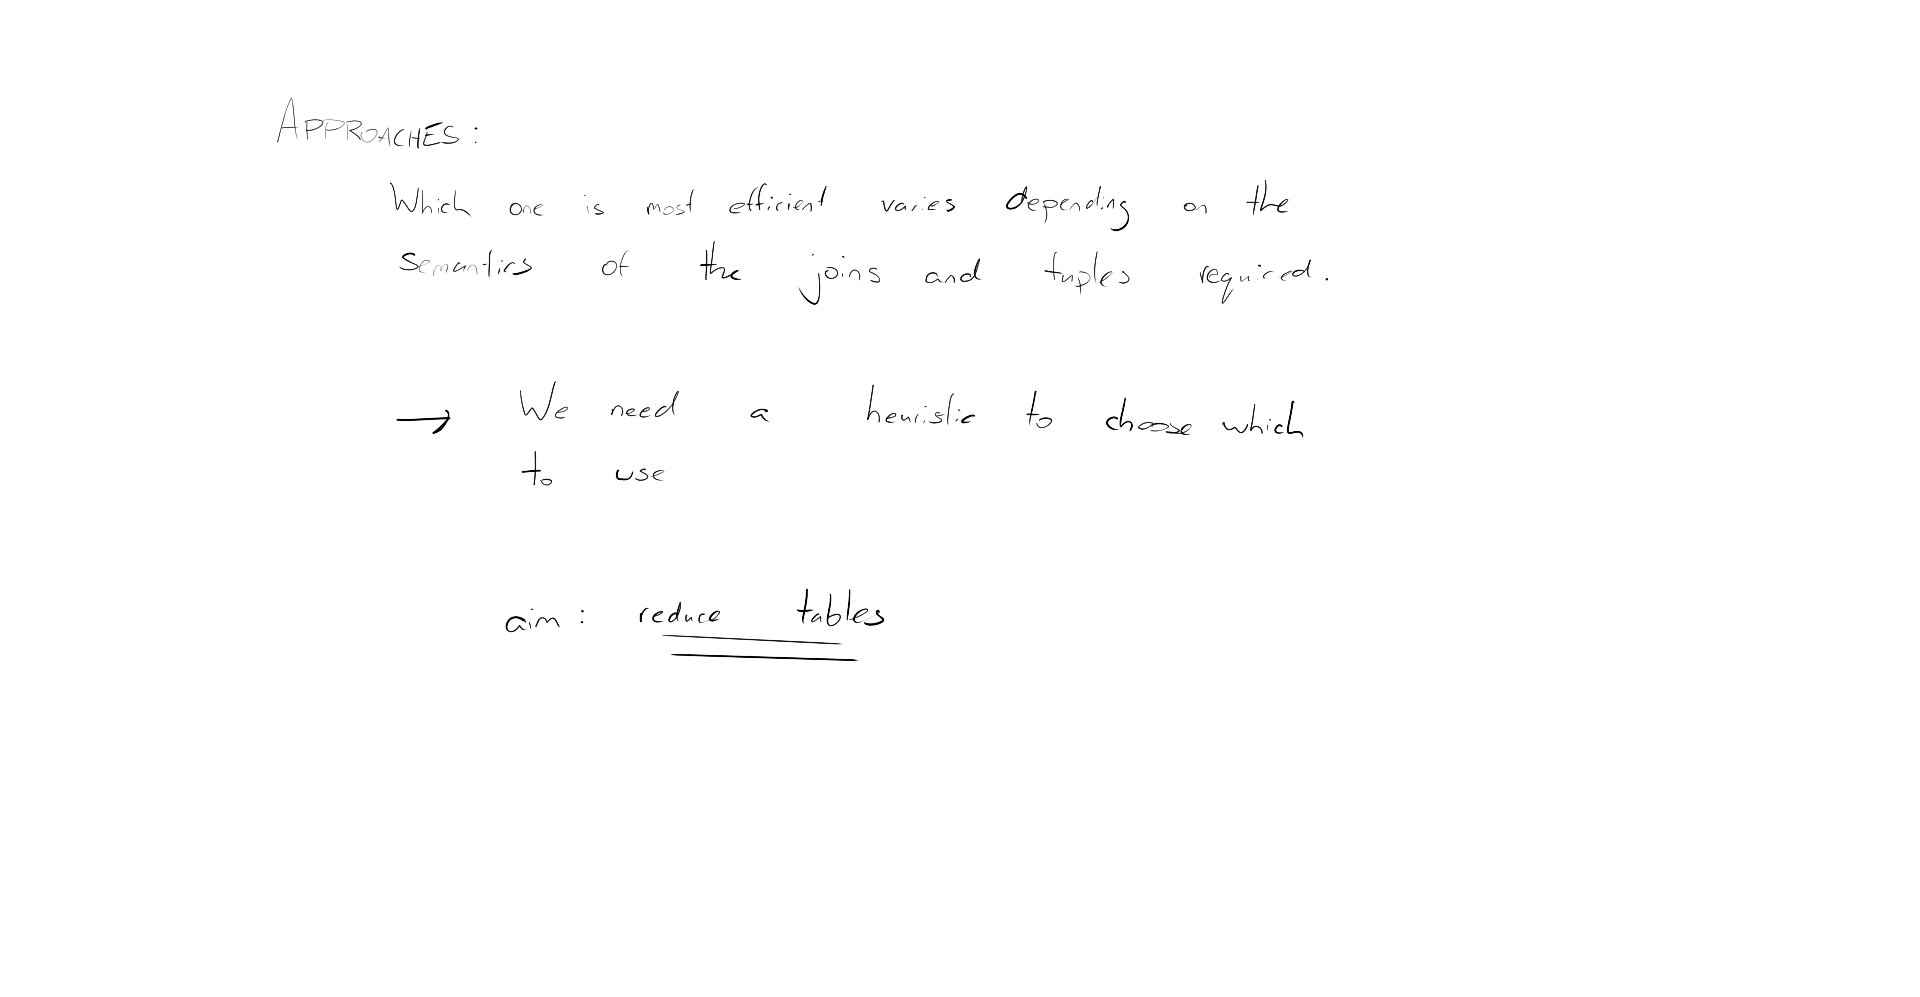 APPROACHES:
Which one is most efficient varies depending on the
semantics of the joins and tuples required.
→ We need a heuristic to choose which
to use
aim: reduce tables